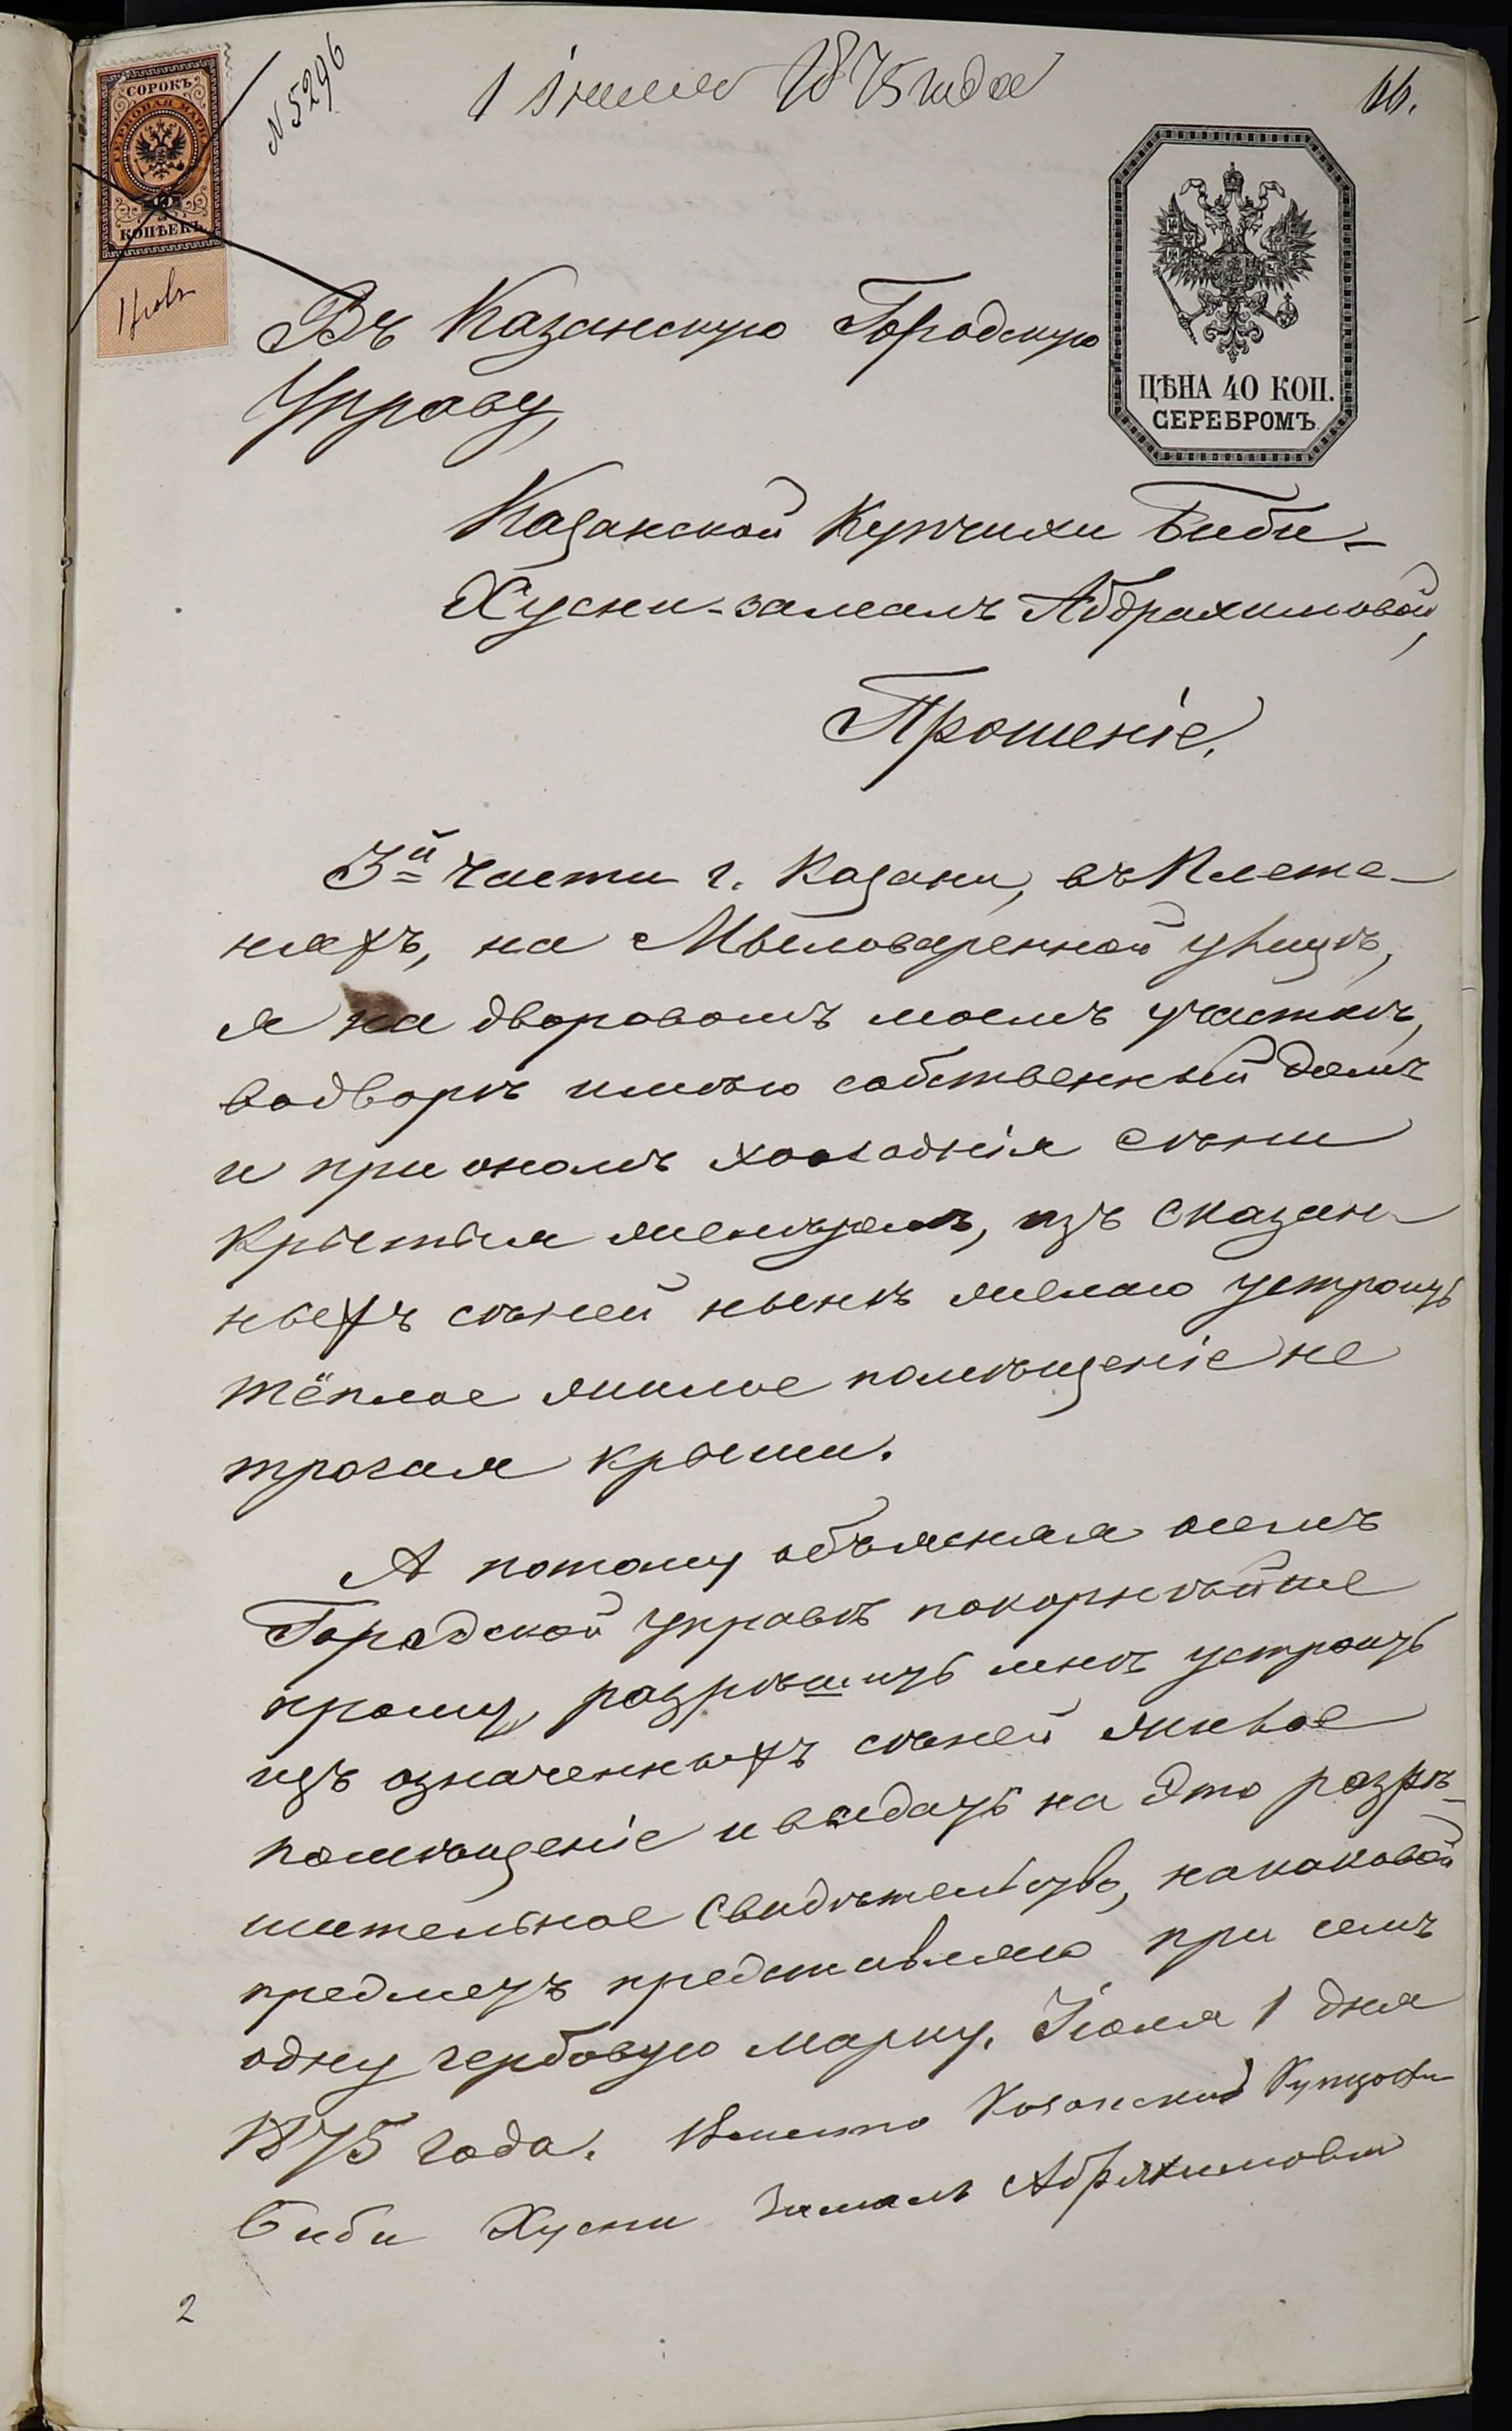 1 іюля 1875 года
66.
N 5296
СОРОКЪ
ГЕРБОВАЯ МАРКА
40
КОПѢЕКЪ
ЦѢНА 40 КОП.
СЕРЕБРОМЪ.
Въ Казанскую Городскую
Управу,
Казанской Купчихи Биби-
Хусни-замалъ Абдрахимовой,
Прошеніе.
3й части г. Казани, въ Плете-
няхъ, на Мыловаренной улицѣ,
я на дворовомъ моемъ участкѣ,
водворѣ имѣю собственный домъ
и при ономъ холодныя сѣни
крытыя желѣзомъ, изъ сказан-
ныхъ сѣней нынѣ желаю устроить
тёплое жилое помѣщеніе не
трогая крыши.
А потому объясняя о семъ
Городской управѣ покорнѣйше
прошу, разрѣшить мнѣ устроить
изъ означенныхъ сѣней жилое
помѣщеніе и выдать на это разрѣ-
шительное свидѣтельство, на каковой
предметъ представляю при семъ
одну гербовую марку. Іюля 1 дня
1875 года. Вместо Казанской Купчихи
Биби Хусни Замалъ Абдряхимовы
2